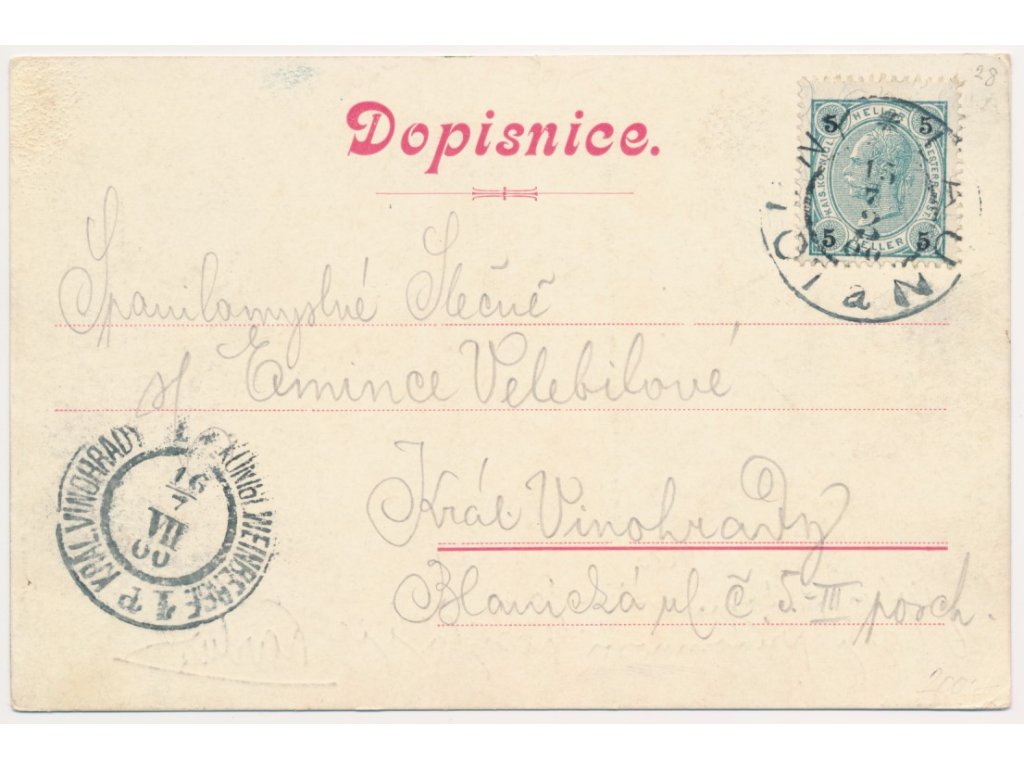 28
Dopisnice.
5 HELLER 5
5 HELLER 5
15
7
Spanilomyslné Slečně
sl Emince Velebilové
KRÁL. VINOHRADY 1 * KÖNIGL. WEINBERGE 1 P
16
7
VII
00
Král. Vinohrady
Blanická ul. č 5-III-posch.